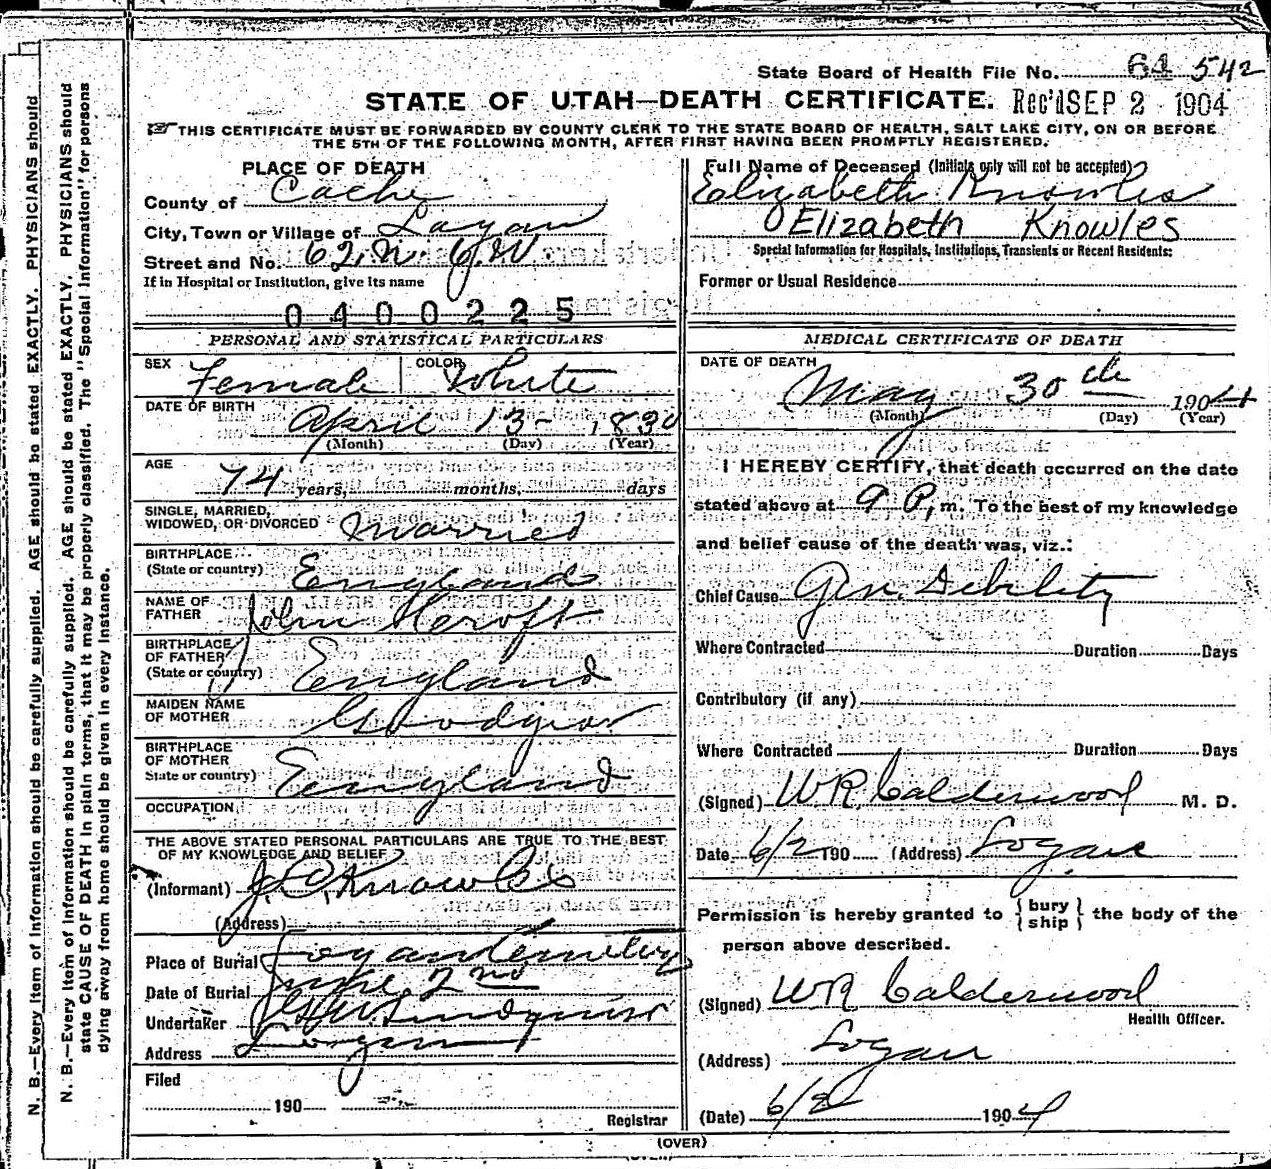 State Board of Health File No. 64 542
STATE OF UTAH—DEATH CERTIFICATE. Rec'd SEP 2 1904
☞ THIS CERTIFICATE MUST BE FORWARDED BY COUNTY CLERK TO THE STATE BOARD OF HEALTH, SALT LAKE CITY, ON OR BEFORE
THE 5TH OF THE FOLLOWING MONTH, AFTER FIRST HAVING BEEN PROMPTLY REGISTERED.
PLACE OF DEATH
County of Cache
City, Town or Village of Logan
Street and No. 62. N. 6. W
If in Hospital or Institution, give its name
0400225
PERSONAL AND STATISTICAL PARTICULARS
SEX Female COLOR White
DATE OF BIRTH
April 13- 1830
(Month) (Day) (Year)
AGE
74 years, months, days
SINGLE, MARRIED,
WIDOWED, OR DIVORCED Married
BIRTHPLACE
(State or country) England
NAME OF
FATHER John
BIRTHPLACE
OF FATHER
(State or country) England
MAIDEN NAME
OF MOTHER
BIRTHPLACE
OF MOTHER
State or country) England
OCCUPATION
THE ABOVE STATED PERSONAL PARTICULARS ARE TRUE TO THE BEST
OF MY KNOWLEDGE AND BELIEF
(Informant) Knowles
(Address)
Place of Burial Logan Cemetery
Date of Burial June 2nd
Undertaker Lindquist
Address Logan
Filed
190
Registrar
Full Name of Deceased (Initials only will not be accepted)
Elizabeth Knowles
Elizabeth Knowles
Special Information for Hospitals, Institutions, Transients or Recent Residents:
Former or Usual Residence
MEDICAL CERTIFICATE OF DEATH
DATE OF DEATH
May 30th 1904
(Month) (Day) (Year)
I HEREBY CERTIFY, that death occurred on the date
stated above at 9 P, m. To the best of my knowledge
and belief cause of the death was, viz.:
Chief Cause Gen. Debility
Where Contracted Duration Days
Contributory (if any)
Where Contracted Duration Days
(Signed) W R Calderwood M. D.
Date 6/2 190 (Address) Logan
Permission is hereby granted to {bury
ship} the body of the
person above described.
(Signed) W R Calderwood
Health Officer.
(Address) Logan
(Date) 6/2 1904
(OVER)
N. B.—Every item of information should be carefully supplied. AGE should be stated EXACTLY. PHYSICIANS should
N. B.—Every item of information should be carefully supplied. AGE should be stated EXACTLY. PHYSICIANS should
state CAUSE OF DEATH in plain terms, that it may be properly classified. The "Special Information" for persons
dying away from home should be given in every instance.